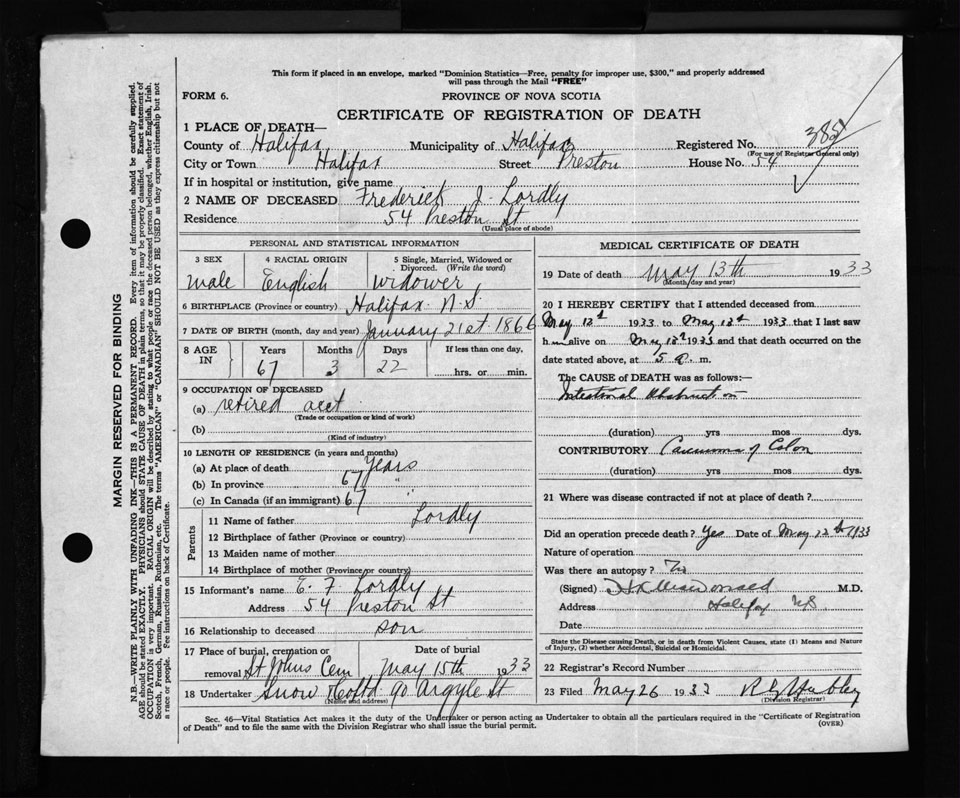 This form if placed in an envelope, marked "Dominion Statistics—Free, penalty for improper use, $300," and properly addressed
will pass through the Mail "FREE"
FORM 6. PROVINCE OF NOVA SCOTIA
CERTIFICATE OF REGISTRATION OF DEATH
1 PLACE OF DEATH—
County of Halifax Municipality of Halifax Registered No.
(For use of Registrar General only)
City or Town Halifax Street Preston House No. 54
If in hospital or institution, give name
2 NAME OF DECEASED Frederick J. Lordly
Residence 54 Preston St
(Usual place of abode)
PERSONAL AND STATISTICAL INFORMATION
3 SEX 4 RACIAL ORIGIN 5 Single, Married, Widowed or
Divorced. (Write the word)
male English widower
6 BIRTHPLACE (Province or country) Halifax N.S.
7 DATE OF BIRTH (month, day and year) January 21st 1866
8 AGE IN Years Months Days If less than one day,
67 3 22 hrs. or min.
9 OCCUPATION OF DECEASED
(a) retired acct
(Trade or occupation or kind of work)
(b)
(Kind of industry)
10 LENGTH OF RESIDENCE (in years and months)
(a) At place of death years
(b) In province 67 "
(c) In Canada (if an immigrant) 67 "
Parents
11 Name of father Lordly
12 Birthplace of father (Province or country)
13 Maiden name of mother
14 Birthplace of mother (Province or country)
15 Informant's name E. F. Lordly
Address 54 Preston St
16 Relationship to deceased son
17 Place of burial, cremation or Date of burial
removal St Johns Cem May 15th 1933
18 Undertaker Snow & Co Ltd 90 Argyle St
(Name and address)
MEDICAL CERTIFICATE OF DEATH
19 Date of death May 13th 1933
(Month, day and year)
20 I HEREBY CERTIFY that I attended deceased from
May 12th 1933 to May 13th 1933 that I last saw
him alive on May 13th 1933 and that death occurred on the
date stated above, at 5 p. m.
The CAUSE OF DEATH was as follows:—
Intestinal Obstruction
(duration) yrs mos dys.
CONTRIBUTORY Carcinoma of Colon
(duration) yrs mos dys.
21 Where was disease contracted if not at place of death?
Did an operation precede death? Yes Date of May 12th 1933
Nature of operation
Was there an autopsy? No
(Signed) M.D.
Address Halifax NS
Date
State the Disease causing Death, or in death from Violent Causes, state (1) Means and Nature
of Injury, (2) whether Accidental, Suicidal or Homicidal.
22 Registrar's Record Number
23 Filed May 26 1933
(Division Registrar)
Sec. 46—Vital Statistics Act makes it the duty of the Undertaker or person acting as Undertaker to obtain all the particulars required in the "Certificate of Registration
of Death" and to file the same with the Division Registrar who shall issue the burial permit. (OVER)
MARGIN RESERVED FOR BINDING
N.B.—WRITE PLAINLY WITH UNFADING INK—THIS IS A PERMANENT RECORD. Every item of information should be carefully supplied.
AGE should be stated EXACTLY. PHYSICIANS should STATE CAUSE OF DEATH in plain terms, so that it may be properly classified. Exact statement of
OCCUPATION is very important. RACIAL ORIGIN will be described by stating to what people or race the deceased person belonged, whether English, Irish,
Scotch, French, German, Russian, Ruthenian, etc. The terms "AMERICAN" or "CANADIAN" SHOULD NOT BE USED as they express citizenship but not
a race or people. See instructions on back of Certificate.